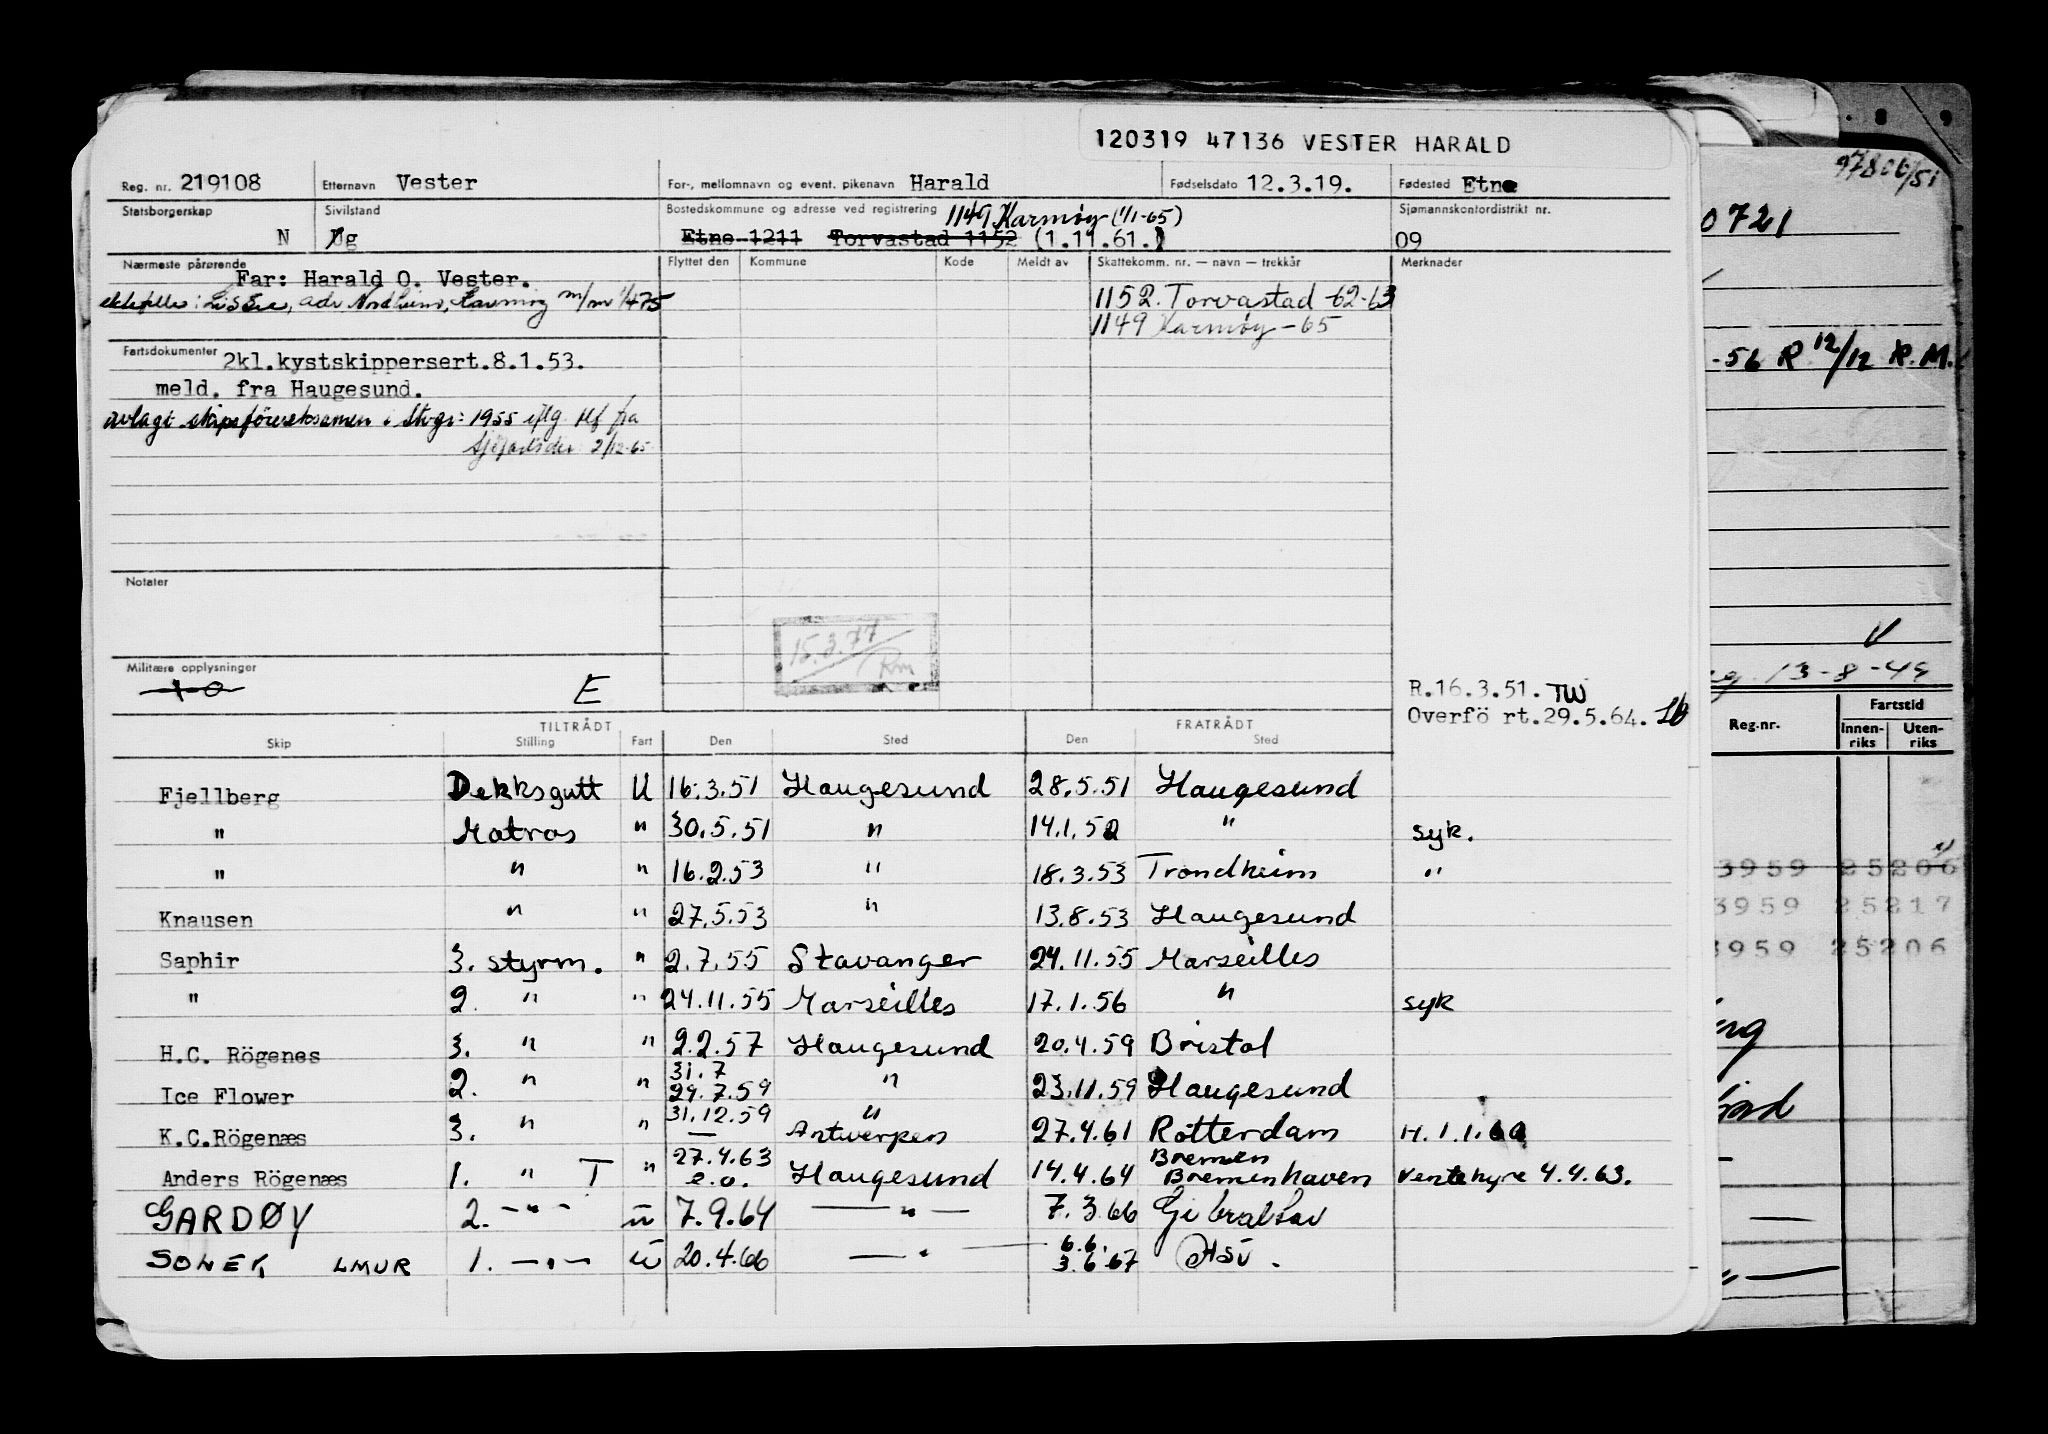 120319 47136 VESTER HARALD
Reg. nr. 219108 Etternavn Vester For-, mellomnavn og event. pikenavn Harald Fødselsdato 12.3.19. Fødested Etne
Statsborgerskap Sivilstand Bostedskommune og adresse ved registrering 1149 Karmøy (1/1-65) Sjømannskontordistrikt nr.
N g Etne 1211 Torvastad 1152 (1.11.61.) 09
Nærmeste pårørende Flyttet den Kommune Kode Meldt av Skattekomm. nr. — navn — trekkår Merknader
Far: Harald O. Vester.
1152. Torvastad -62-63
1149 Karmøy - 65
Fartsdokumenter 2kl.kystskippersert.8.1.53.
meld. fra Haugesund.
avlagt skipsförereksamen i Stvgr: 1955 iflg. tlf fra
2/12-65
Notater
15.3.77
Rm
Militære opplysninger
E
R.16.3.51. TW
Overfö rt.29.5.64.
TILTRÅDT FRATRÅDT
Skip Stilling Fart Den Sted Den Sted
Fjellberg Dekksgutt U 16.3.51 Haugesund 28.5.51 Haugesund
" Matros " 30.5.51 " 14.1.52 " syk.
" " " 16.2.53 " 18.3.53 Trondheim "
Knausen " " 27.5.53 " 13.8.53 Haugesund
Saphir 3. styrm. " 2.7.55 Stavanger 24.11.55 Marseilles
" 2. " " 24.11.55 Marseilles 17.1.56 " syk
H.C. Rögenes 3. " " 2.2.57 Haugesund 20.4.59 Bristol
31.7
Ice Flower 2. " " 29.7.59 " 23.11.59 Haugesund
31.12.59 "
K.C.Rögenæs 3. " " — Antwerpen 27.4.61 Rotterdam H.1.1.60
27.4.63 Bremen
Anders Rögenæs 1. " T " e.o. Haugesund 14.4.64 Bremenhaven Ventehyre 4.4.63.
GARDØY 2. -"- u 7.9.64 — " — 7.3.66 Gibraltar
6.6.
SONEK LMUR 1. -"- u 20.4.66 — " — 3.6.67 Hsv.
8 9
97806/51
0721
-56 R 12/12 R.M.
13-8-49
Reg.nr. Fartstid
Innen-riks Uten-riks
3959 25206
3959 25217
3959 25206